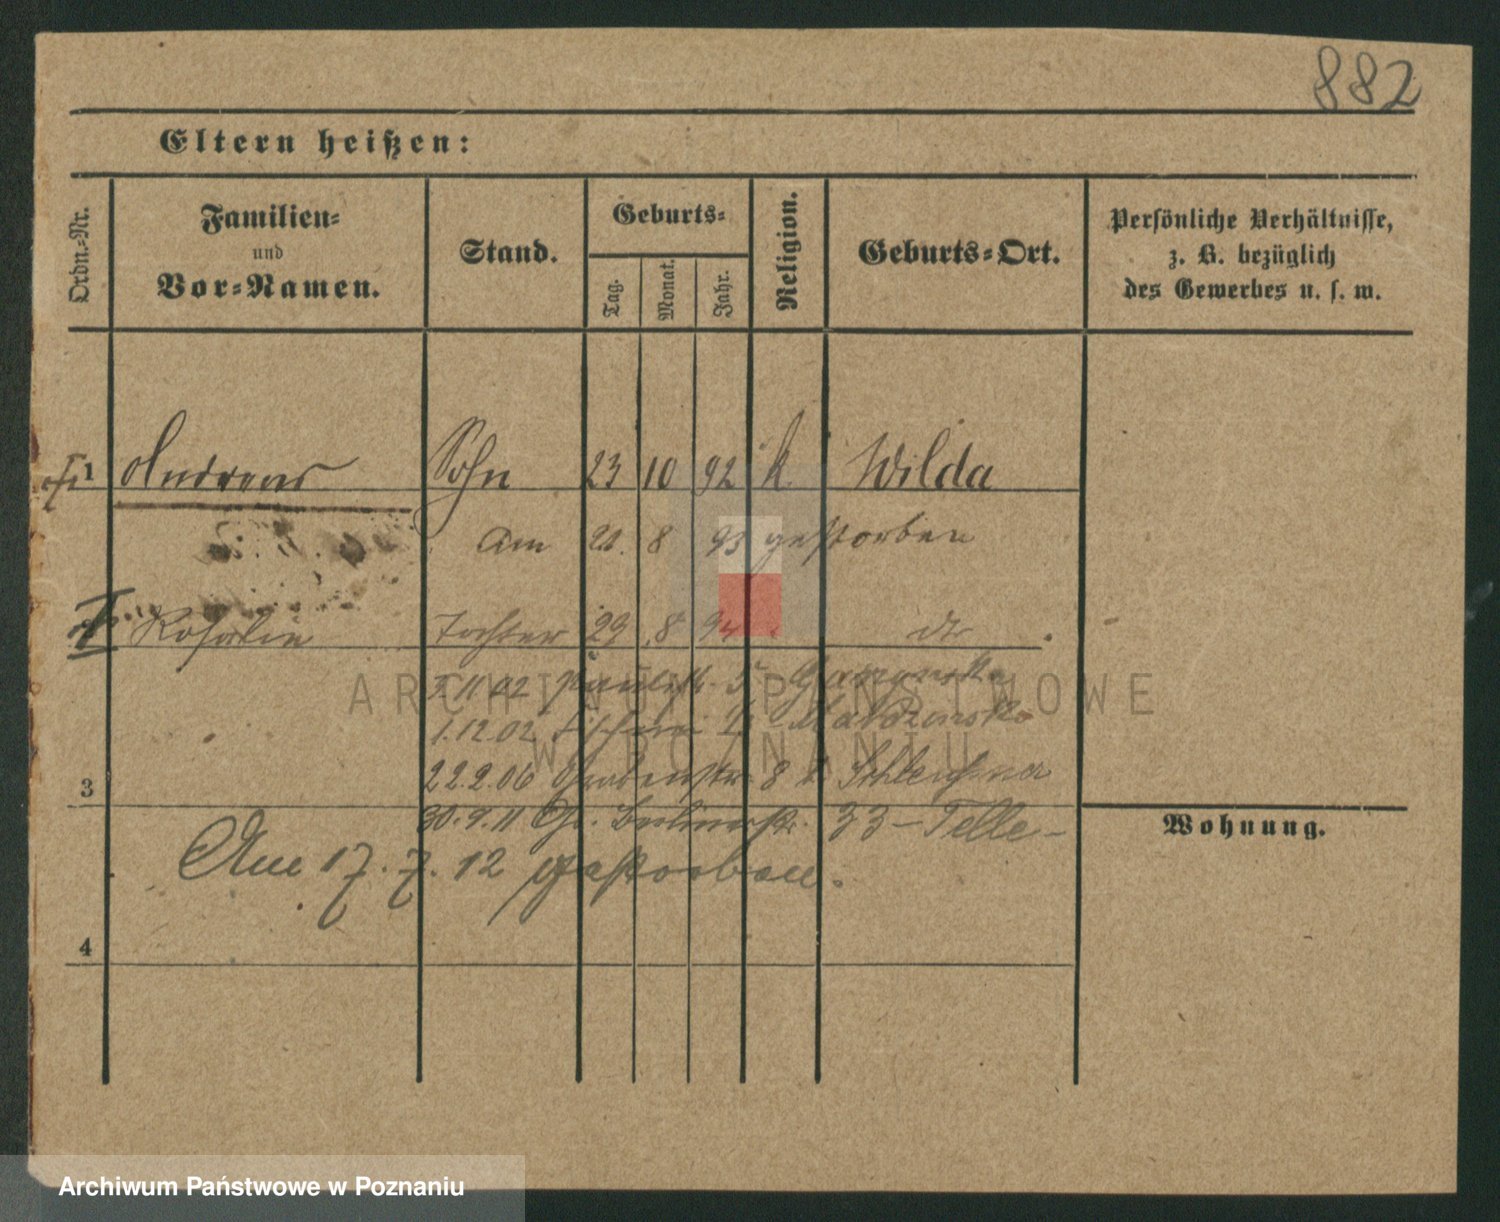 882
Eltern heißen:
Ordn.-Nr.
Familien-
und
Vor-Namen.
Stand.
Geburts-
Tag.
Monat.
Jahr.
Religion.
Geburts-Ort.
Persönliche Verhältnisse,
z. B. bezüglich
des Gewerbes u. s. w.
1 Andreas Sohn 23 10 92 k Wilda
am 21. 8 93 gestorben
Rosalie Tochter 29 8 94 dto
3.11.02 Paulistr. 5
1.12.02
22.2.06 Grabenstr. 8 b
3
30.9.11 Gr. Berlinerstr. 33 – Telle –
Wohnung.
Am 17.7.12 gestorben.
4
ARCHIWUM PAŃSTWOWE
W POZNANIU
Archiwum Państwowe w Poznaniu